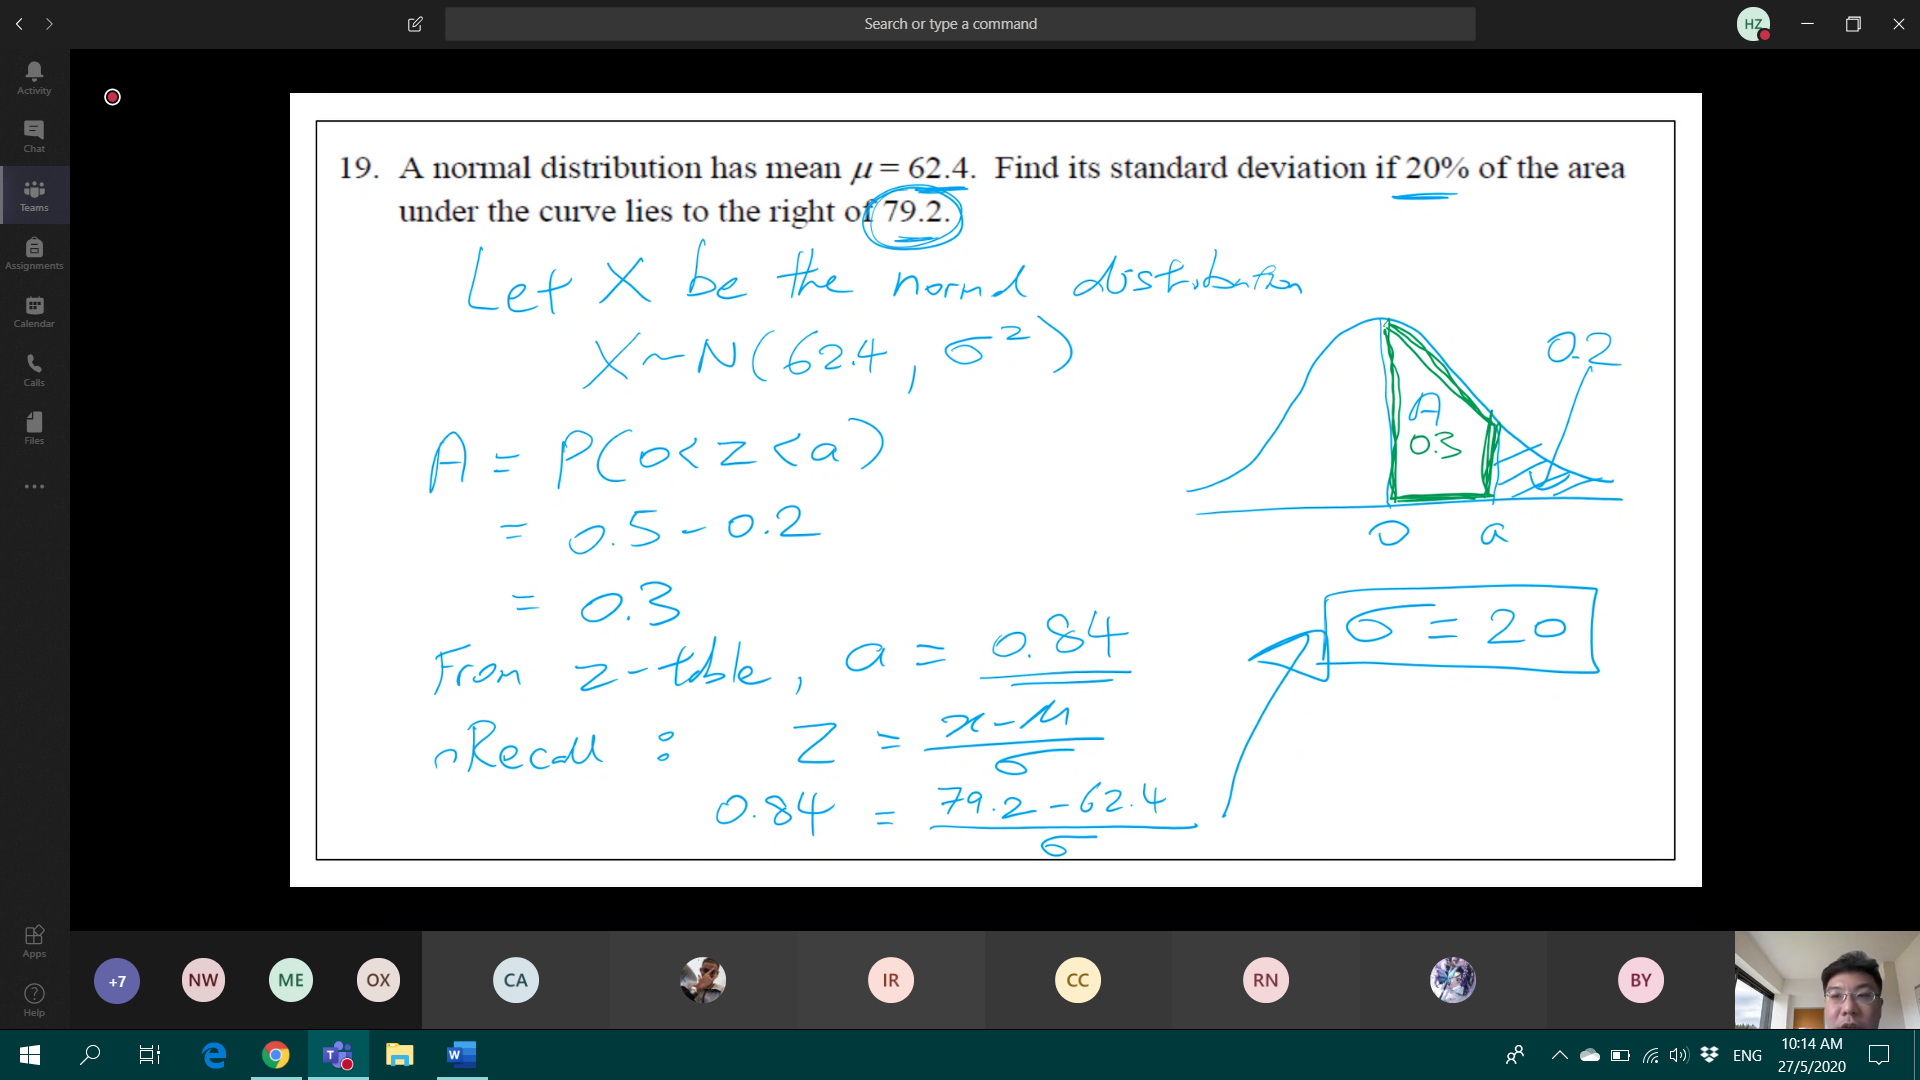 Search or type a command
HZ
Activity
Chat
Teams
Assignments
Calendar
Calls
Files
Apps
Help
19. A normal distribution has mean μ = 62.4. Find its standard deviation if 20% of the area
under the curve lies to the right of 79.2.
Let X be the normal distribution
X ~ N(62.4, σ²)
A = P(0 < z < a)
= 0.5 - 0.2
= 0.3
From z-table, a = 0.84
Recall : Z = (x - μ)/σ
0.84 = (79.2 - 62.4)/σ
0.2
A
0.3
0 a
σ = 20
+7 NW ME OX CA IR CC RN BY
ENG
10:14 AM
27/5/2020